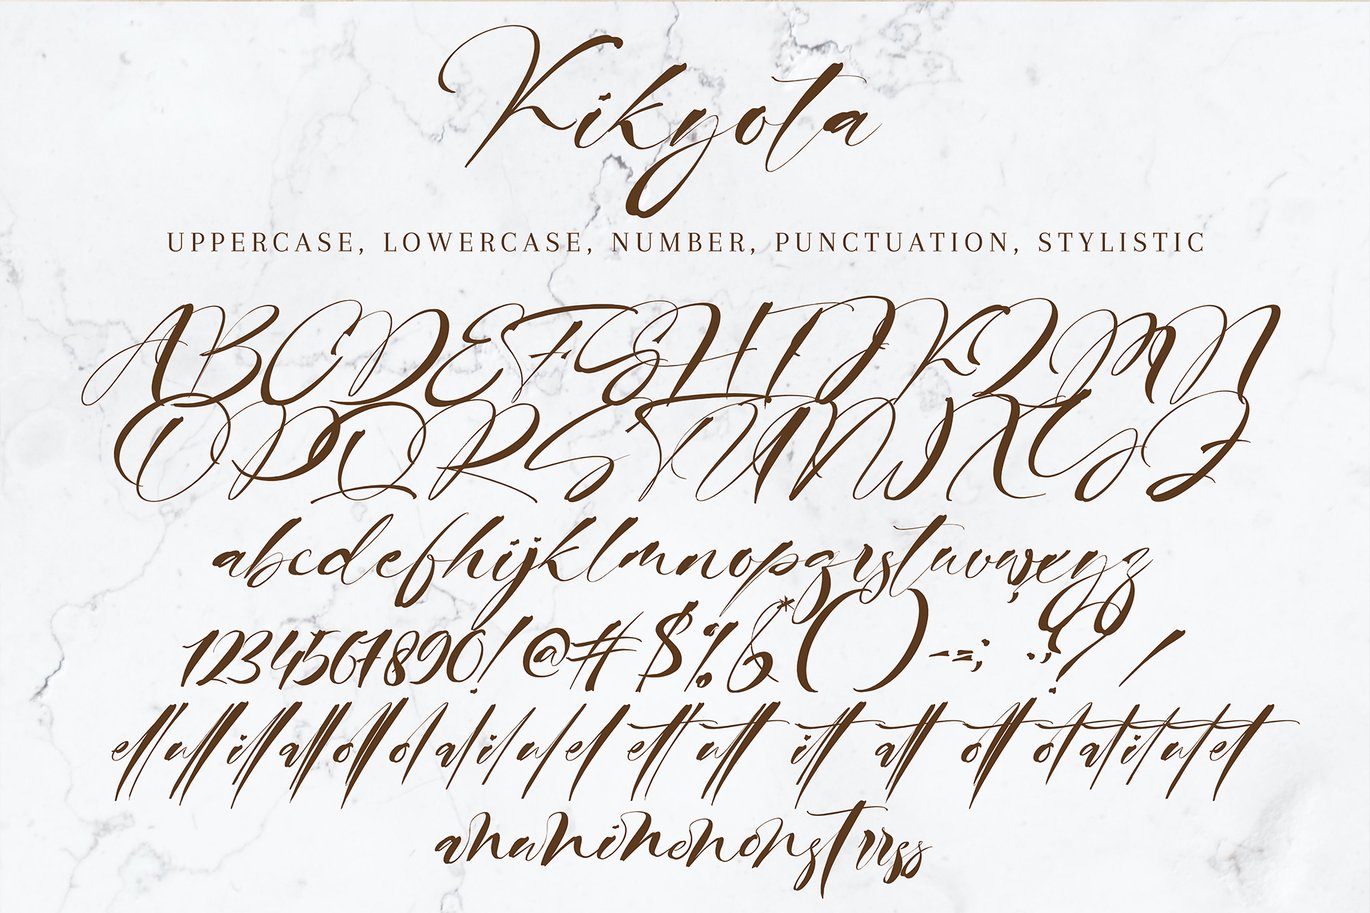 Kikyota
UPPERCASE, LOWERCASE, NUMBER, PUNCTUATION, STYLISTIC
ABCDEFGHIJKLMN
OPQRSTUVWXYZ
abcdefhijklmnopqrstuvwxyz
1234567890!@#$%&*()-=; .,? /
ellullillallollolalilulel ett utt itt att ott otatitutet